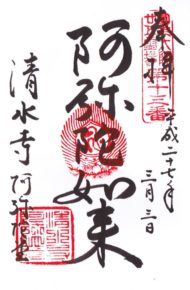 奉拝
平成二十七年
三月三日
阿弥陀如来
清水寺 阿弥陀堂